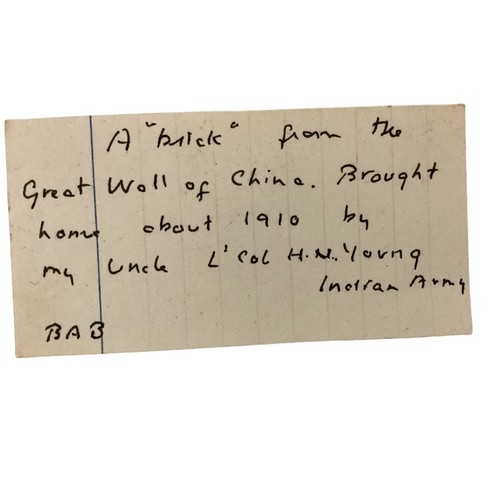 A "brick" from the
Great Wall of China. Brought
home about 1910 by
my Uncle Lt Col H.N. Young
Indian Army
BAB